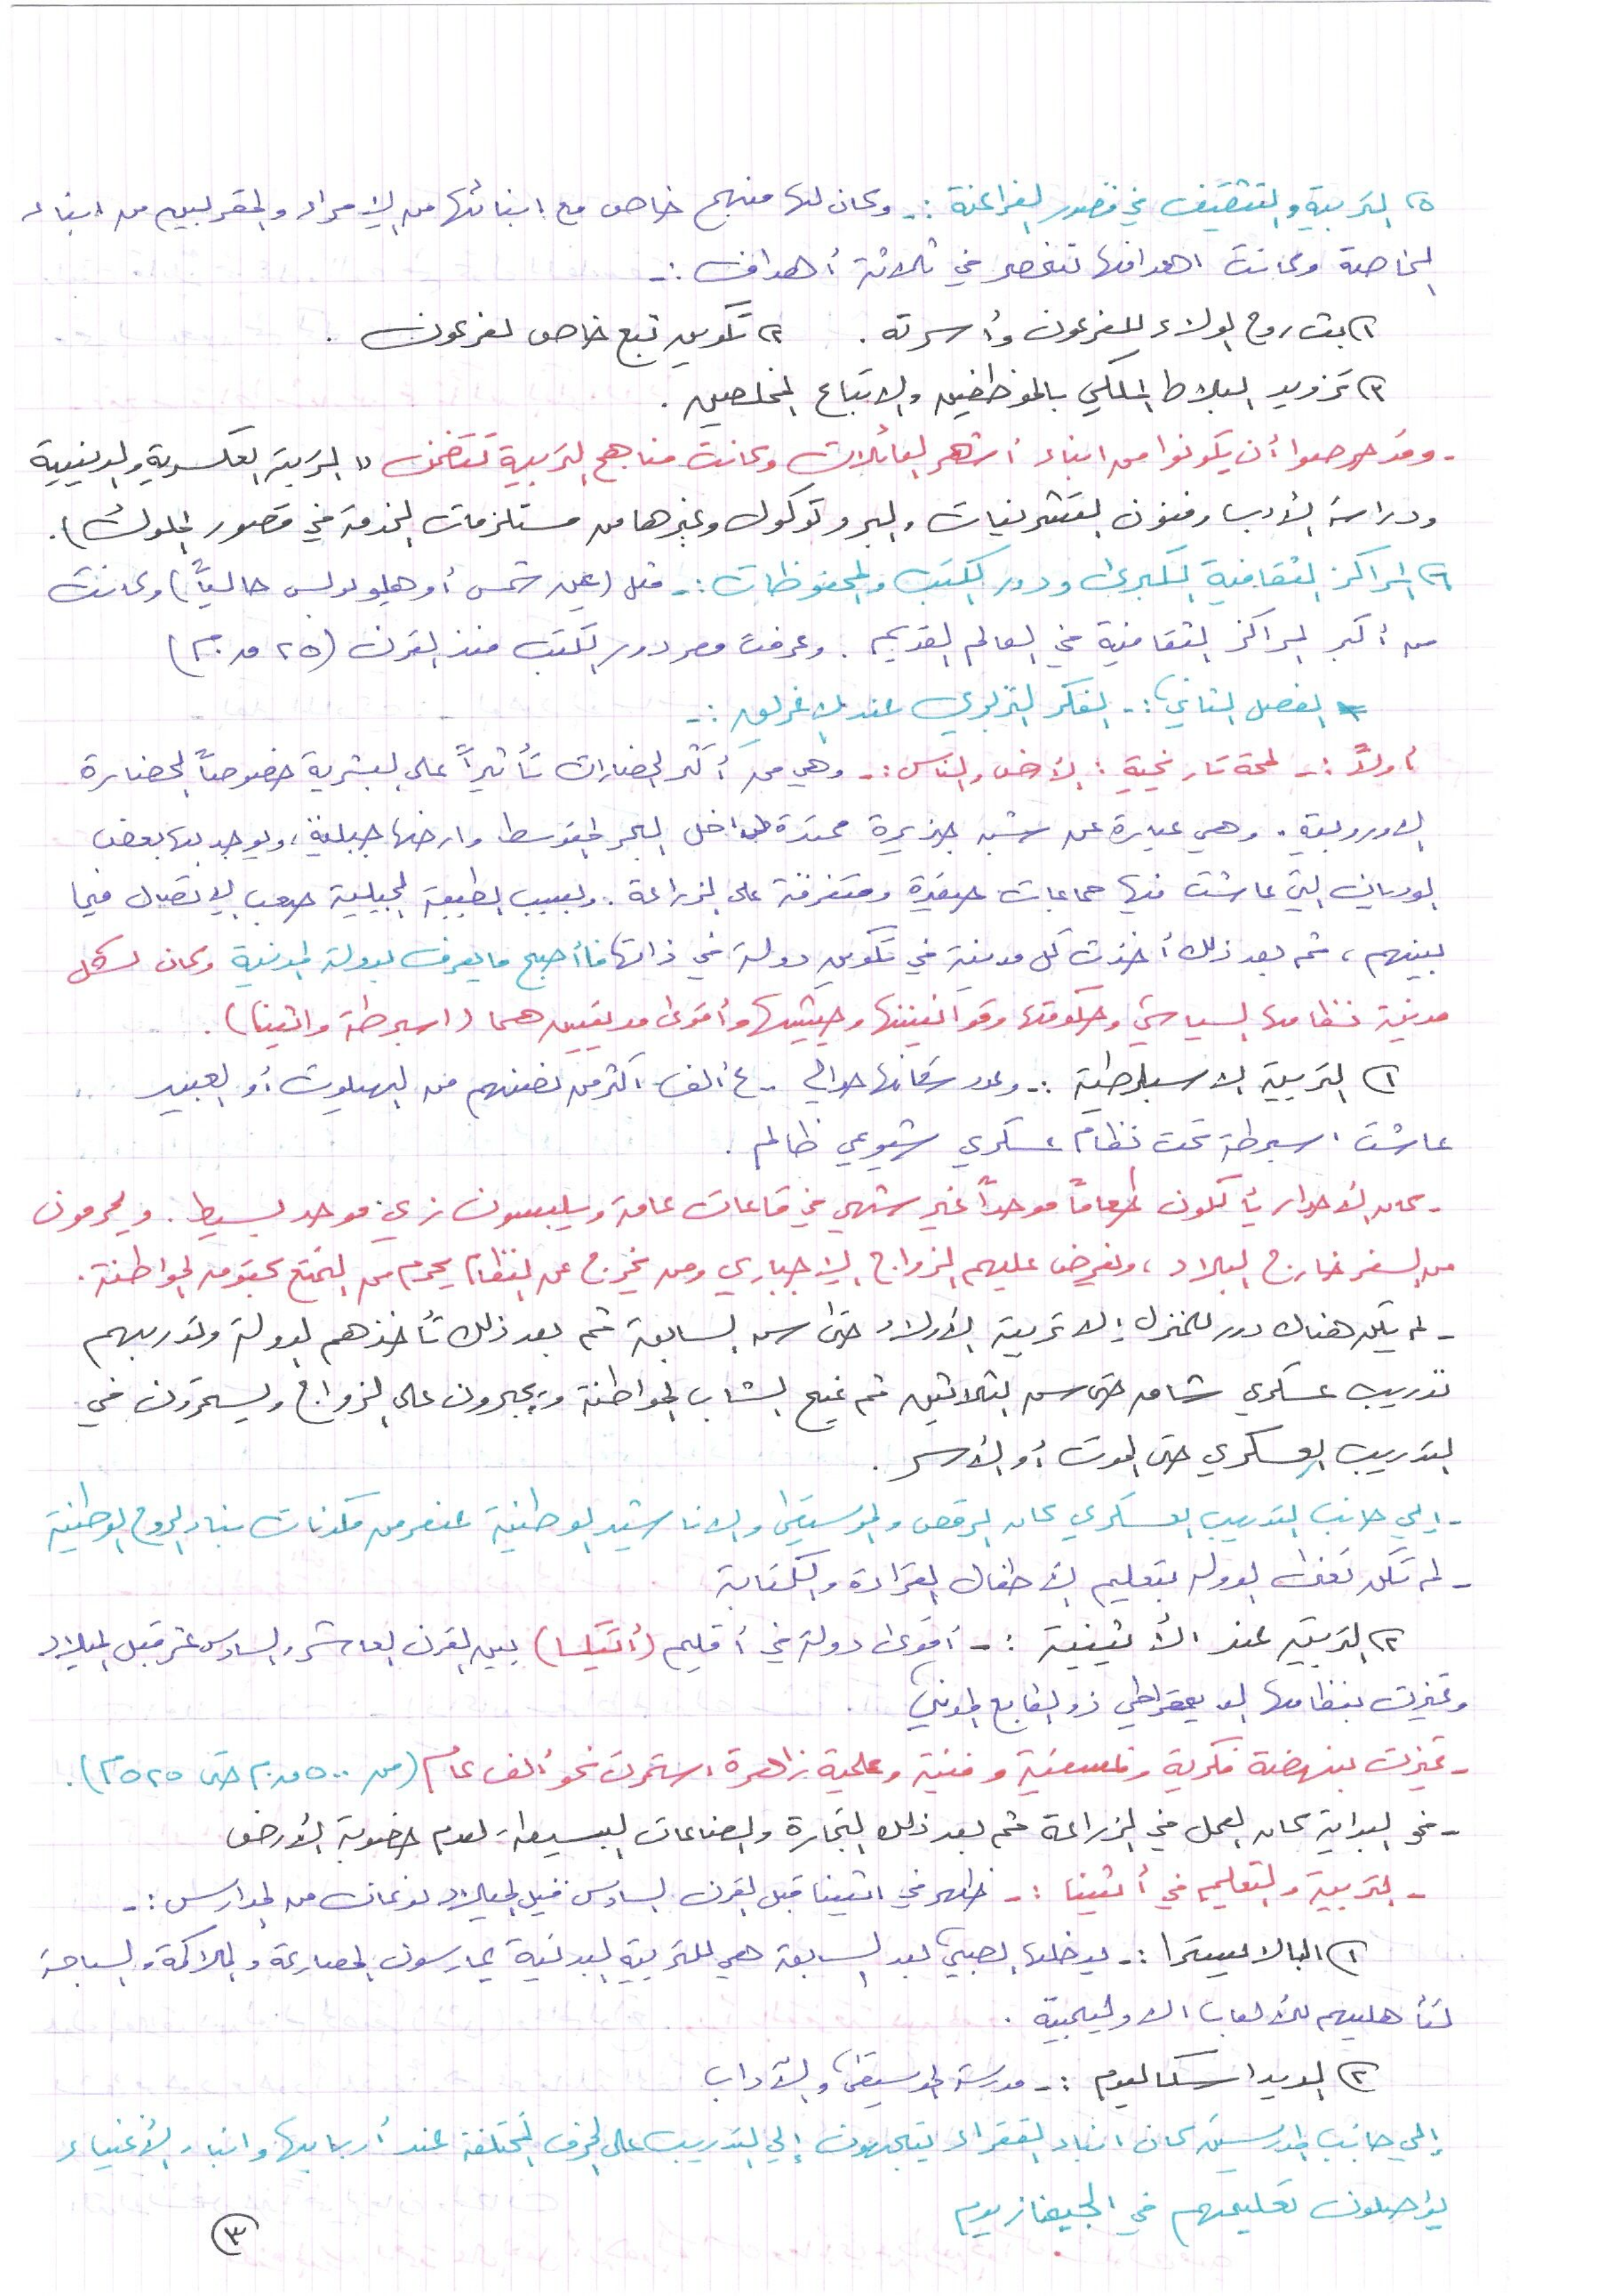 ٥) التربية والتثقيف في قصور الفراعنة :- وكان لها منهج خاص مع ابنائها من الامراء والمقربين من ابناء
الخاصة وكانت اهدافها تنحصر في ثلاثة أهداف :-
١) بث روح الولاء للفرعون وأسرته . ٢) تكوين تبع خاص لفرعون .
٣) تزويد البلاط الملكي بالموظفين والاتباع المخلصين .
- وقد حرصوا أن يكونوا من ابناء أشهر العائلات وكانت مناهج التربية تتضمن (( التربية العسكرية والدينية
ودراسة الأدب وفنون التشريفات والبروتوكول وغيرها من مستلزمات الخدمة في قصور الملوك ) .
٦) المراكز الثقافية الكبرى ودور الكتب والمحفوظات :- مثل (عين شمس أو هليوبولس حالياً) وكانت
من أكبر المراكز الثقافية في العالم القديم . وعرفت مصر دور الكتب منذ القرن (٢٥ ق.م)
* الفصل الثاني :- الفكر التربوي عند الإغريق :-
أولاً :- لمحة تاريخية : الأرض والناس :- وهي من أكثر الحضارات تأثيراً على البشرية خصوصاً الحضارة
الاوروبية . وهي عبارة عن شبه جزيرة ممتدة داخل البحر المتوسط وارضها جبلية ، ويوجد بها بعض
الوديان التي عاشت فيها جماعات صغيرة ومتفرقة على الزراعة . وبسبب الطبيعة الجبلية صعب الاتصال فيما
بينهم ، ثم بعد ذلك أخذت كل مدينة في تكوين دولة في ذاتها فأصبح ما يعرف بدولة المدينة وكان لكل
مدينة نظامها السياسي وحكومتها وقوانينها وجيشها وأقوى مدينتين هما (اسبرطة واثينا) .
١) التربية الاسبارطية :- وعدد سكانها حوالي ٤٠ ألف أكثر من نصفهم من الهيلوت أو العبيد
عاشت اسبرطة تحت نظام عسكري شيوعي ظالم .
- كان الأحرار يأكلون طعاماً موحداً غير شهي في قاعات عامة ويلبسون زي موحد بسيط . ويحرمون
من السفر خارج البلاد ، وتفرض عليهم الزواج الإجباري ومن يخرج عن النظام يحرم من التمتع بحقوق المواطنة .
- لم يكن هناك دور للمنزل إلا تربية الأولاد حتى سن السابعة ثم بعد ذلك تأخذهم الدولة وتدربهم
تدريب عسكري شاق حتى سن الثلاثين ثم يمنح الشاب المواطنة ويجبرون على الزواج ويستمرون في
التدريب العسكري حتى الموت أو الأسر .
- إلى جانب التدريب العسكري كان الرقص والموسيقى والاناشيد الوطنية عنصر من مكونات بناء الروح الوطنية
- لم تكن تعنى الدولة بتعليم الأطفال القراءة والكتابة
٢) التربية عند الأثينية :- أقوى دولة في أقليم (أتيكا) بين القرن العاشر والسادس عشر قبل الميلاد
وتميزت بنظامها الديمقراطي ذو الطابع المدني
- تميزت بنهضة فكرية وفلسفية وفنية وعلمية زاهرة استمرت نحو ألف عام (من ٥٠٠ ق.م حتى ٥٢٥م) .
- في البداية كان العمل في الزراعة ثم بعد ذلك التجارة والصناعات البسيطة لعدم خصوبة الأرض
- التربية والتعليم في أثينا :- ظهر في اثينا قبل القرن السادس قبل الميلاد نوعان من المدارس :-
١) البالاييسترا :- يدخلها الصبي بعد السابعة هي للتربية البدنية يمارسون المصارعة والملاكمة والسباحة
لتأهليهم للألعاب الاوليمبية .
٢) الديداسكاليوم :- مدرسة الموسيقى والآداب
إلى جانب المدرستين كان ابناء الفقراء يتجهون إلى التدريب على الحرف المختلفة عند أربابها وابناء الأغنياء
يواصلون تعليمهم في الجيمنازيوم
٣